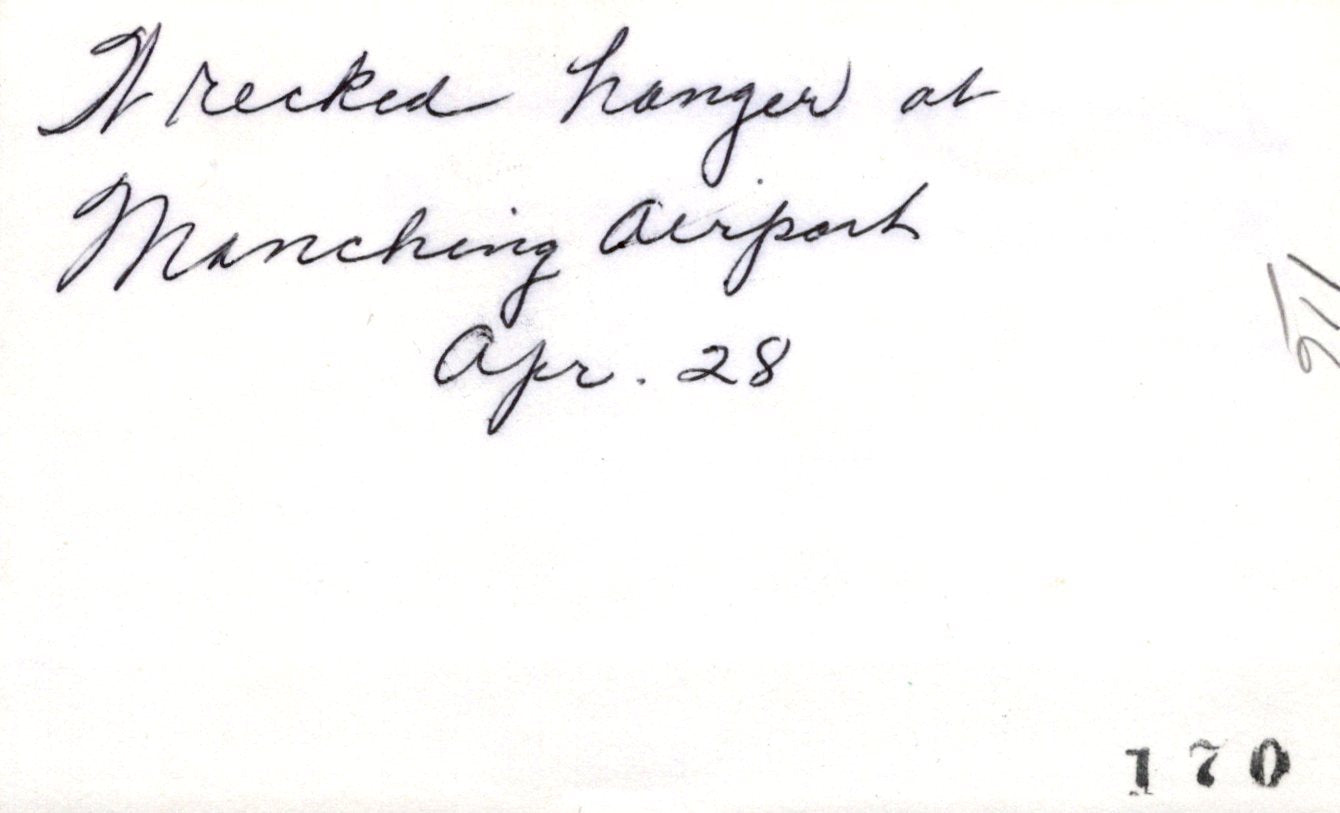 Wrecked hanger at
Manching Airport
Apr. 28
170